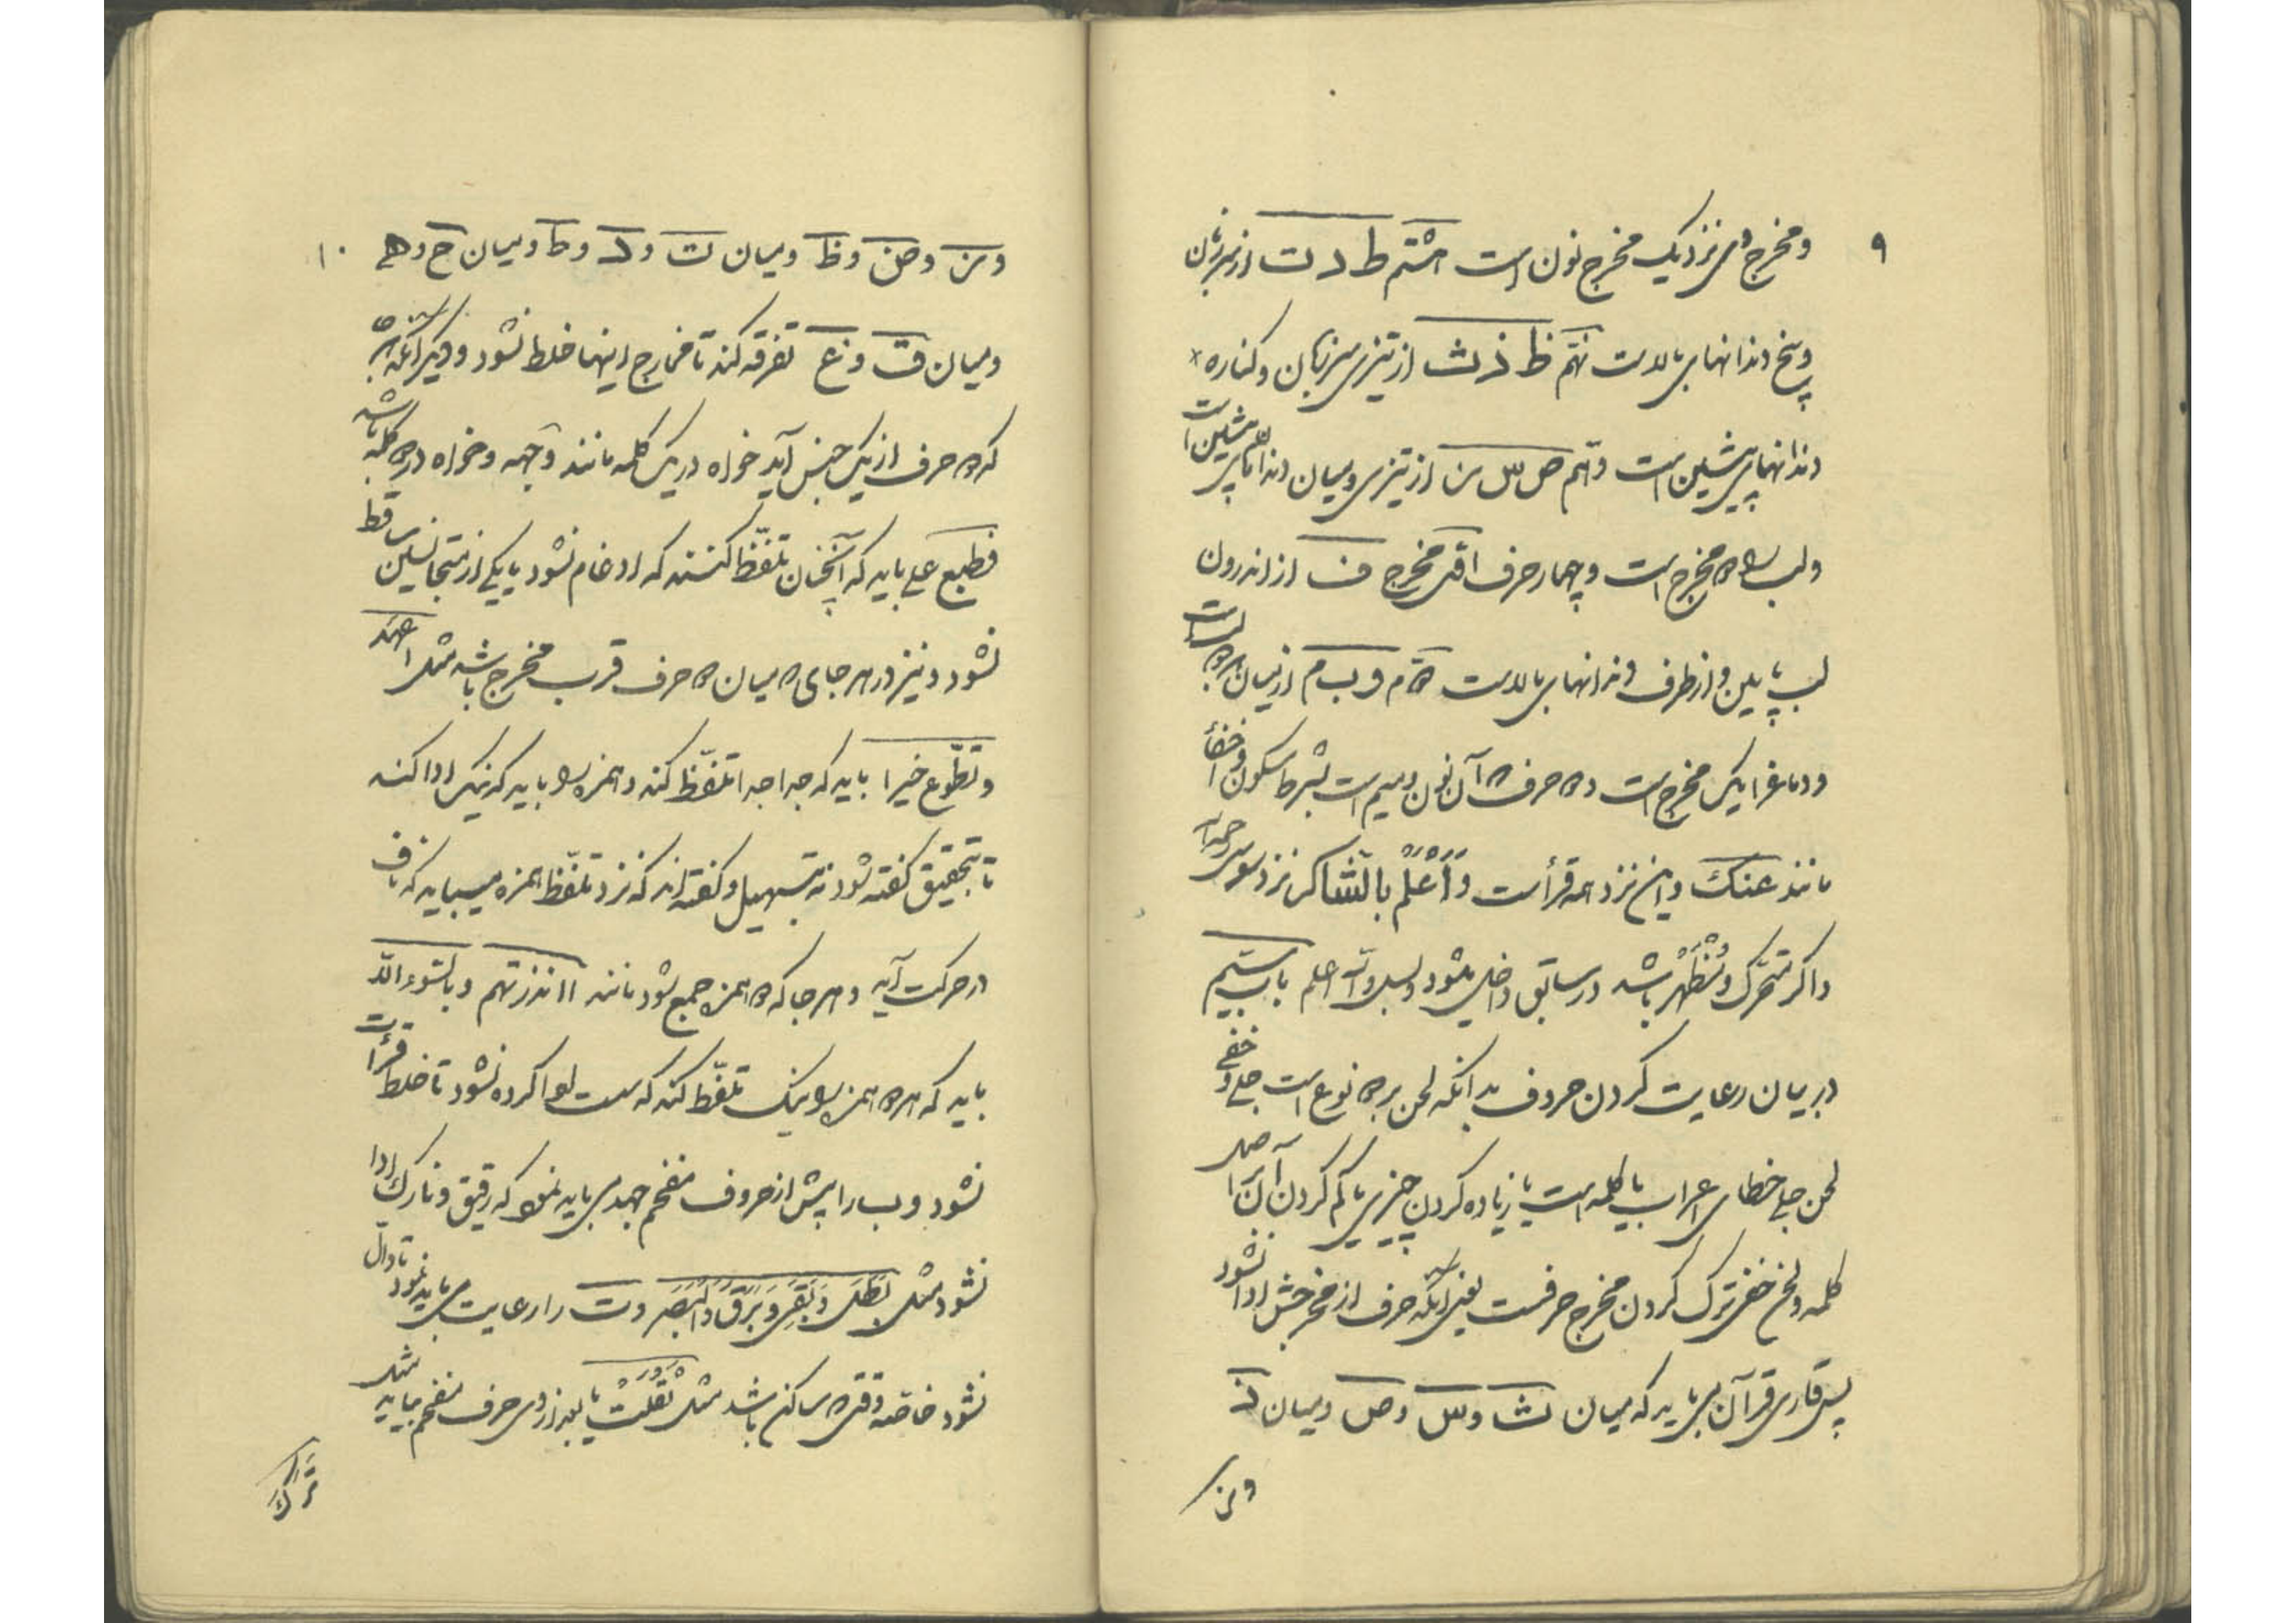 ۹
ومخرج وی نزدیک مخرج نون است هشتم ط د ت از سر زبان
وبیخ دندانهای بالاست نهم ظ ذ ث از تیزی سر زبان و کناره
دندانهای پیشین است دهم ص س ز از تیزی و میان دندانهای پیشین است
ولب را دو مخرج است و چهار حرف اول مخرج ف از اندرون
لب پایین و از طرف دندانهای بالاست دوم و ب م از میان هر دو لب است
ودماغ را یک مخرج است و دو حرف آن نون و میم است بشرط سکون و اخفا
مانند عنک و این نزد همه قراست و اعلم بالشاکرین نزد سوسی
واگر متحرک و مظهر باشد در سابق داخل میشود والله اعلم باب سیم
در بیان رعایت کردن حروف بدانکه لحن بر دو نوع است جلی و خفی
لحن جلی خطای اعراب یا کلمه است یا زیاده کردن چیزی یا کم کردن آن از اصل
کلمه ولحن خفی ترک کردن مخرج حرفست یعنی آنکه حرف از مخرجش ادا نشود
پس قاری قرآن می باید که میان ث و س و ص و میان ذ
و ز
۱۰
و ز و ض و ظ و میان ت و د و ط و میان ح و ه
و میان ق و غ تفرقه کند تا مخارج اینها خلط نشود و دیگر آنکه هر
که دو حرف از یک جنس آید خواه در یک کلمه مانند وجهه و خواه در دو کلمه باشد
فطبع علی باید که آنچنان تلفظ کنند که ادغام نشود یا یکی از متجانسین ساقط
نشود و نیز در هر جای که میان دو حرف قرب مخرج باشد مثل اعهد
و تطوع خیرا باید که جدا جدا تلفظ کند و همزه را باید که نیک ادا کند
تا بتحقیق گفته شود نه بتسهیل و گفته اند که نزد تلفظ همزه میباید که ناف
در حرکت آید و هر جا که دو همزه جمع شود مانند ءانذرتهم و بالسوء الا
باید که هر دو همزه را نیک تلفظ کند که سست ادا کرده نشود تا خلط قرأت
نشود و ب را پیش از حروف مفخم جهد می باید نمود که رقیق و نازک ادا
نشود مثل بطل و بقی و برق والبصر و ت را رعایت می باید نمود تا دال
نشود خاصه وقتی که ساکن باشد مثل ثقلت یا بعد از وی حرف مفخم بیاید مثل
ترک